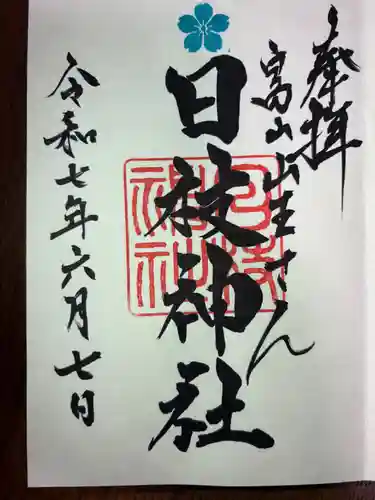 奉拝
富山山王さん
日枝神社
令和七年六月七日
日枝神社